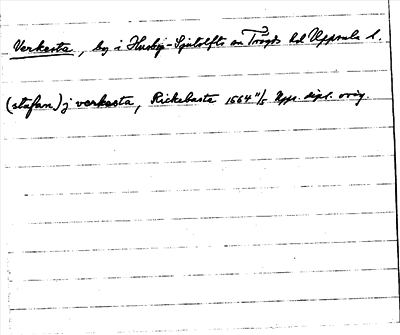 Verkesta, by i Husby-Sjutolfts sn Trögds hd Uppsala l.
(stefan) j verkesta, Rickebasta 1564 11/5 Upps. dipl. orig.